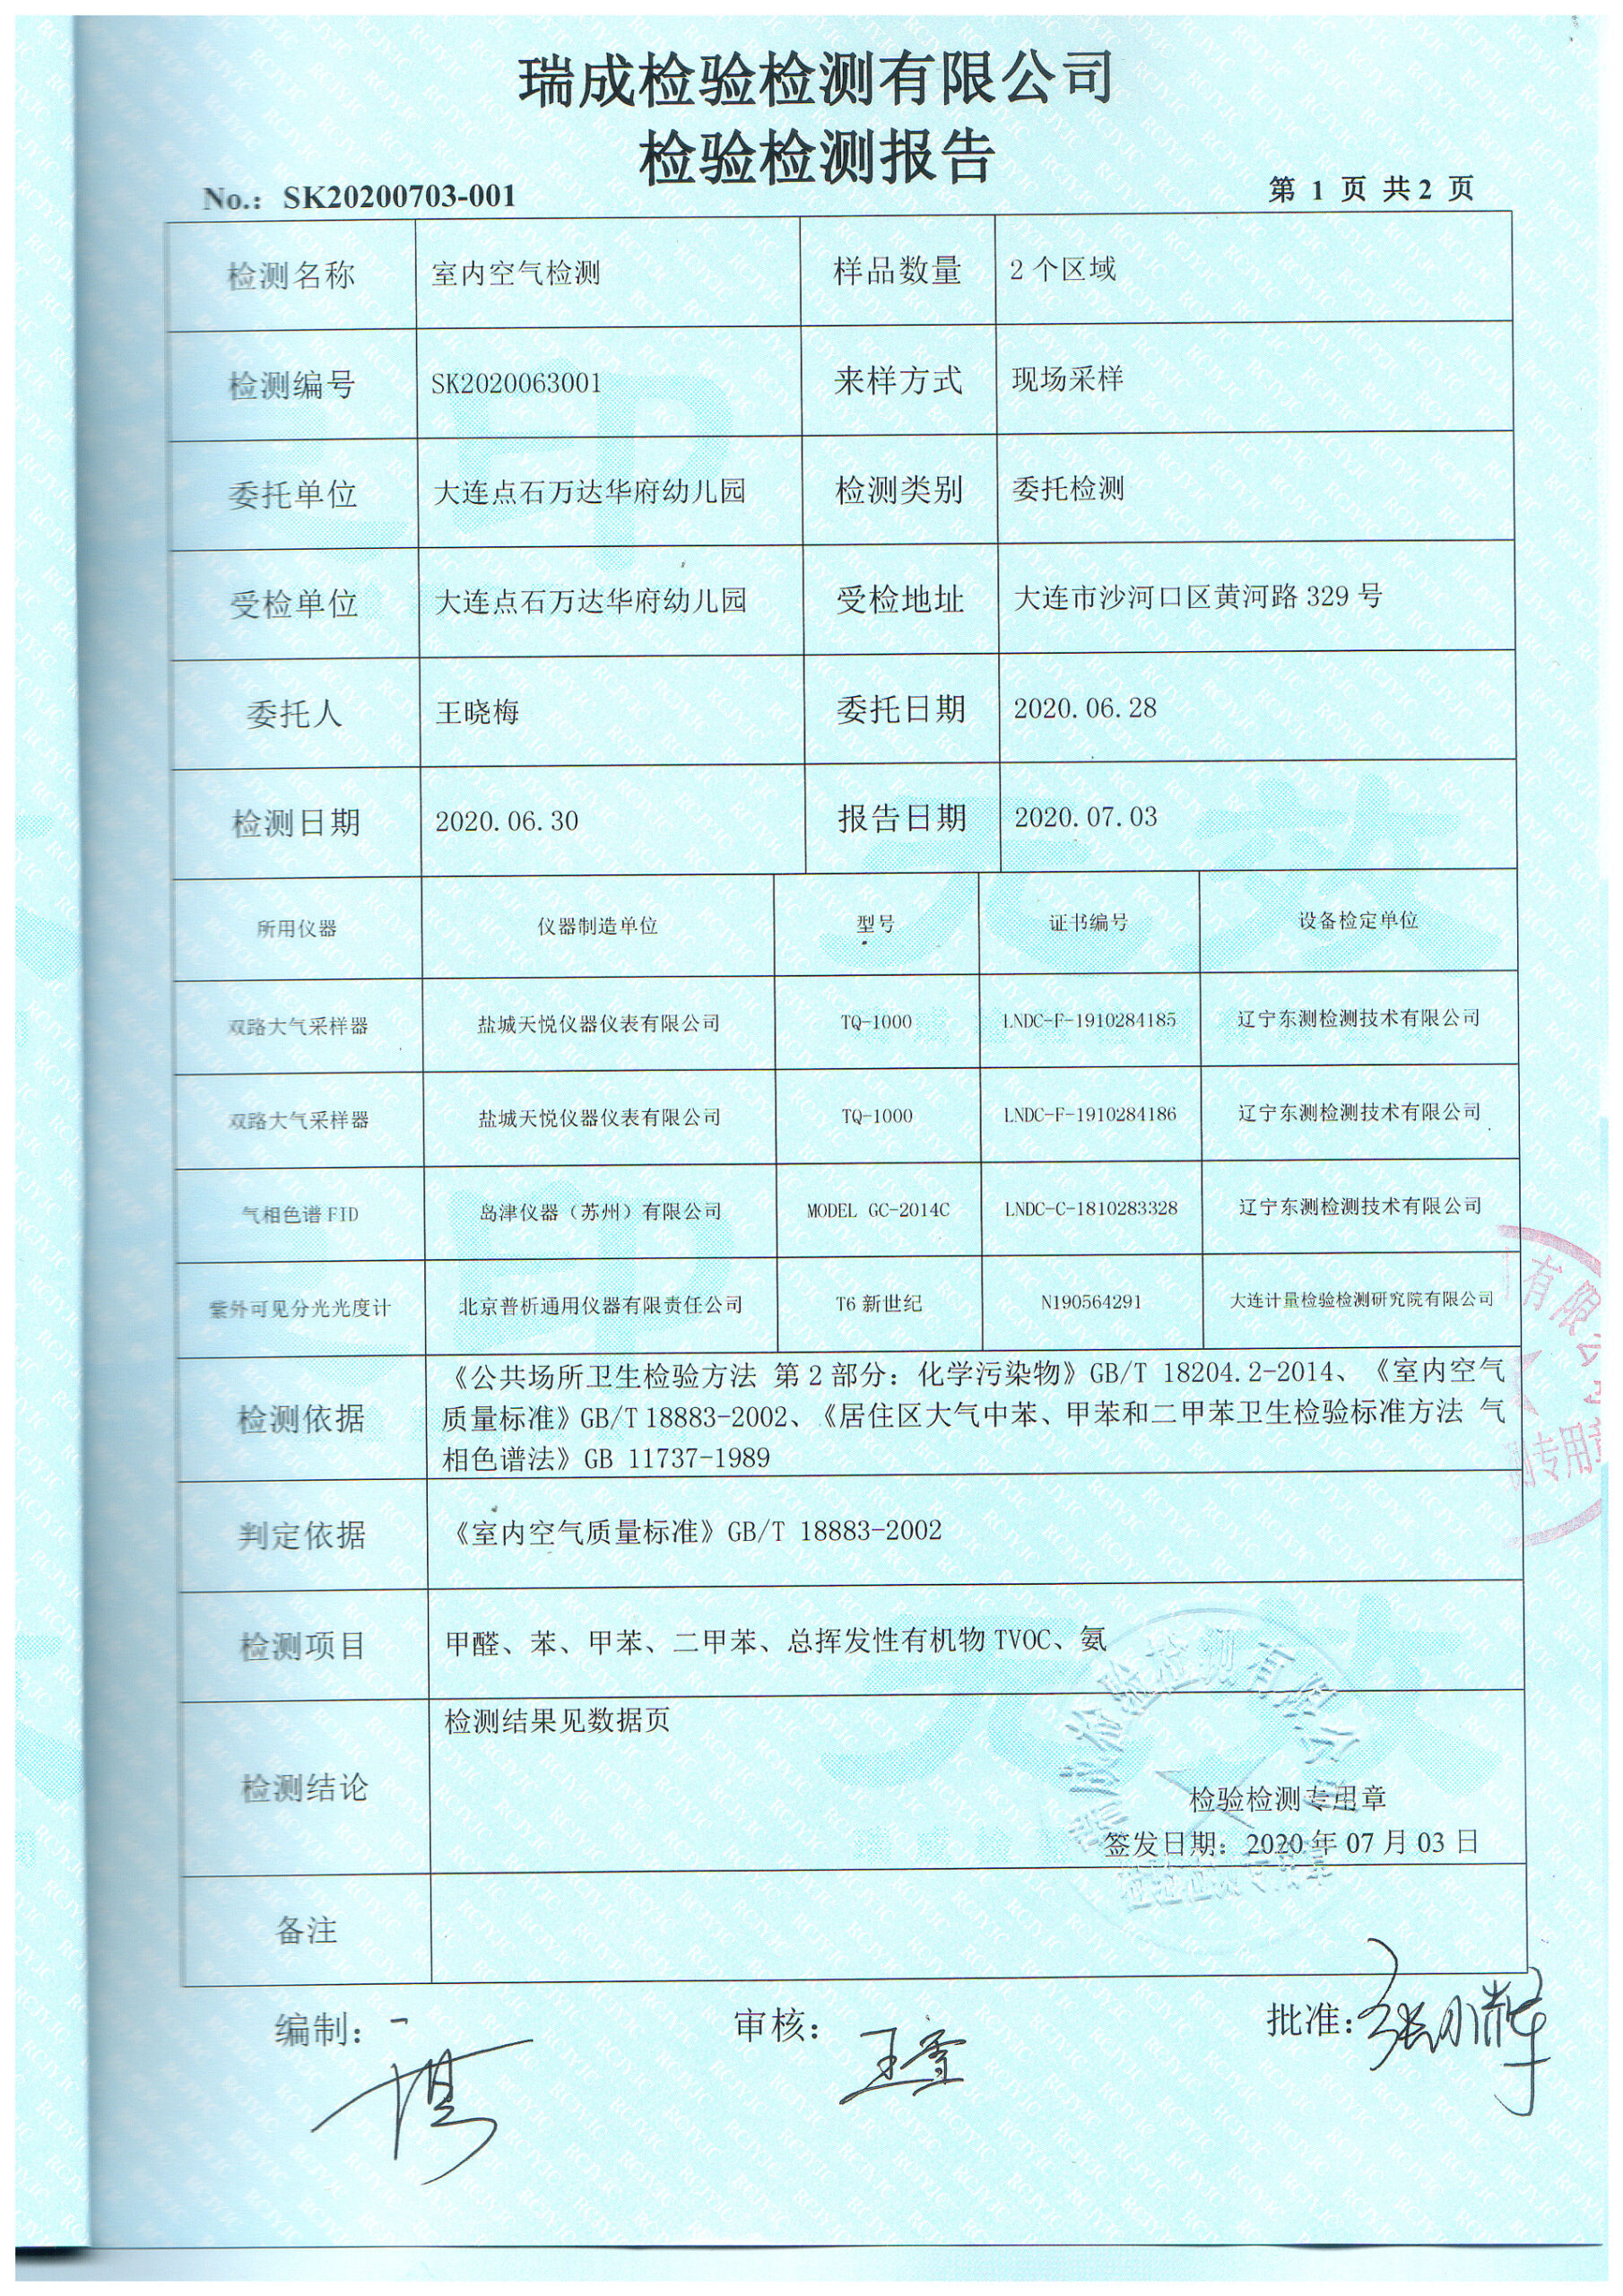 瑞成检验检测有限公司
检验检测报告
No.: SK20200703-001
第 1 页 共 2 页
检测名称 室内空气检测 样品数量 2 个区域
检测编号 SK2020063001 来样方式 现场采样
委托单位 大连点石万达华府幼儿园 检测类别 委托检测
受检单位 大连点石万达华府幼儿园 受检地址 大连市沙河口区黄河路 329 号
委托人 王晓梅 委托日期 2020.06.28
检测日期 2020.06.30 报告日期 2020.07.03
所用仪器 仪器制造单位 型号 证书编号 设备检定单位
双路大气采样器 盐城天悦仪器仪表有限公司 TQ-1000 LNDC-F-1910284185 辽宁东测检测技术有限公司
双路大气采样器 盐城天悦仪器仪表有限公司 TQ-1000 LNDC-F-1910284186 辽宁东测检测技术有限公司
气相色谱 FID 岛津仪器（苏州）有限公司 MODEL GC-2014C LNDC-C-1810283328 辽宁东测检测技术有限公司
紫外可见分光光度计 北京普析通用仪器有限责任公司 T6 新世纪 N190564291 大连计量检验检测研究院有限公司
检测依据
《公共场所卫生检验方法 第 2 部分：化学污染物》GB/T 18204.2-2014、《室内空气
质量标准》GB/T 18883-2002、《居住区大气中苯、甲苯和二甲苯卫生检验标准方法 气
相色谱法》GB 11737-1989
判定依据 《室内空气质量标准》GB/T 18883-2002
检测项目 甲醛、苯、甲苯、二甲苯、总挥发性有机物 TVOC、氨
检测结论 检测结果见数据页
检验检测专用章
签发日期：2020 年 07 月 03 日
备注
编制：
审核：
批准：